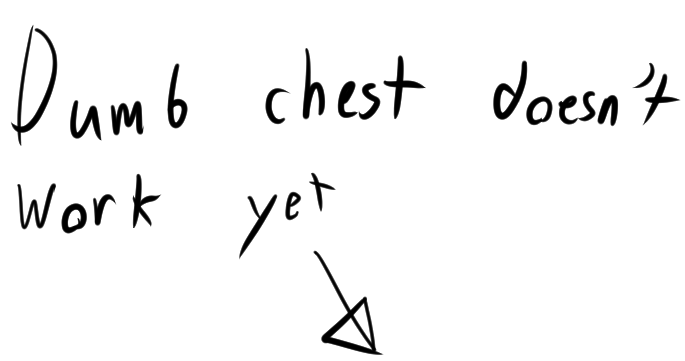 Dumb chest doesn't
work yet